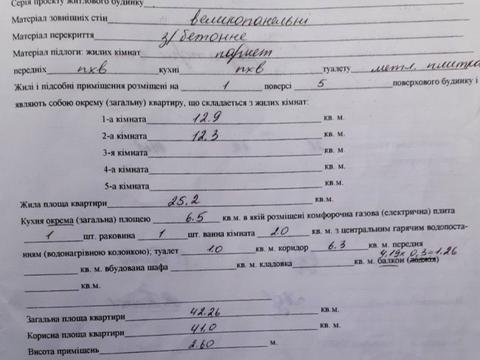 Серія проекту житлового будинку
Матеріал зовнішніх стін великопанельні
Матеріал перекриття з/бетонне
Матеріал підлоги: жилих кімнат паркет
передніх пхв кухні пхв туалету метл. плитка
Жилі і підсобні приміщення розміщені на 1 поверсі 5 поверхового будинку і
являють собою окрему (загальну) квартиру, що складається з жилих кімнат:
1-а кімната 12.9 кв. м.
2-а кімната 12.3 кв. м.
3-я кімната кв. м.
4-а кімната кв. м.
5-а кімната кв. м.
Жила площа квартири 25.2 кв.м.
Кухня окрема (загальна) площею 6.5 кв.м. в якій розміщені комфорочна газова (електрична) плита
1 шт. раковина 1 шт. ванна кімната 2.0 кв. м. з центральним гарячим водопоста-
нням (водонагрівною колонкою); туалет 1.0 кв. м. коридор 6.3 кв. м. передня
4,19х0,3=1.26
кв. м. вбудована шафа кв. м. кладовка кв. м. балкон (лоджія)
кв.м.
Загальна площа квартири 42.26 кв.м.
Корисна площа квартири 41.0 кв.м.
Висота приміщень 2.60 м.